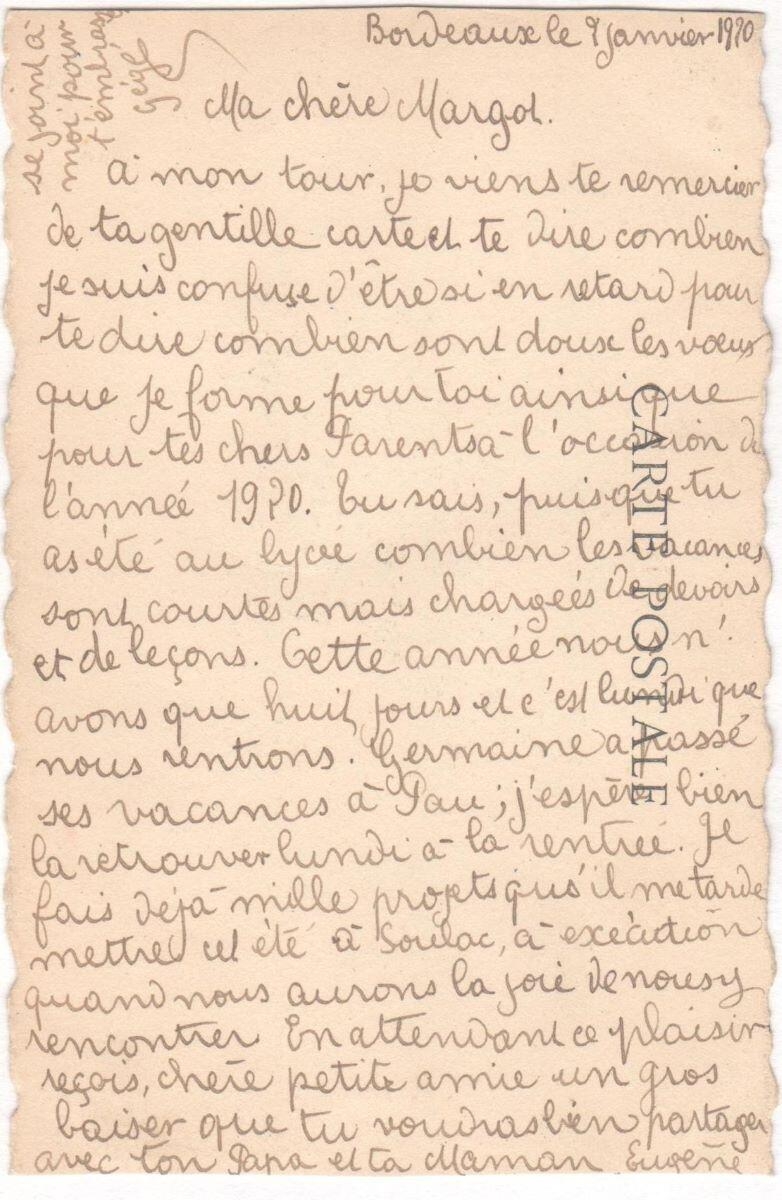 Bordeaux le 9 janvier 1920
Ma chère Margot.
à mon tour, je viens te remercier
de ta gentille carte et te dire combien
je suis confuse d'être si en retard pour
te dire combien sont doux les vœux
que je forme pour toi ainsi que
pour tes chers Parents à l'occasion de
l'année 1920. Tu sais, puisque tu
as été au lycée combien les vacances
sont courtes mais chargées de devoirs
et de leçons. Cette année nous n'
avons que huit jours et c'est lundi que
nous rentrons. Germaine a passé
ses vacances à Pau; j'espère bien
la retrouver lundi à la rentrée. Je
fais déjà mille projets qu'il me tarde
mettre cet été à Soulac, à exécution
quand nous aurons la joie de nous y
rencontrer En attendant ce plaisir
reçois, chère petite amie un gros
baiser que tu voudras bien partager
avec ton Papa et ta Maman Eugène
se joint à
moi pour
t'embrasser
CARTE POSTALE